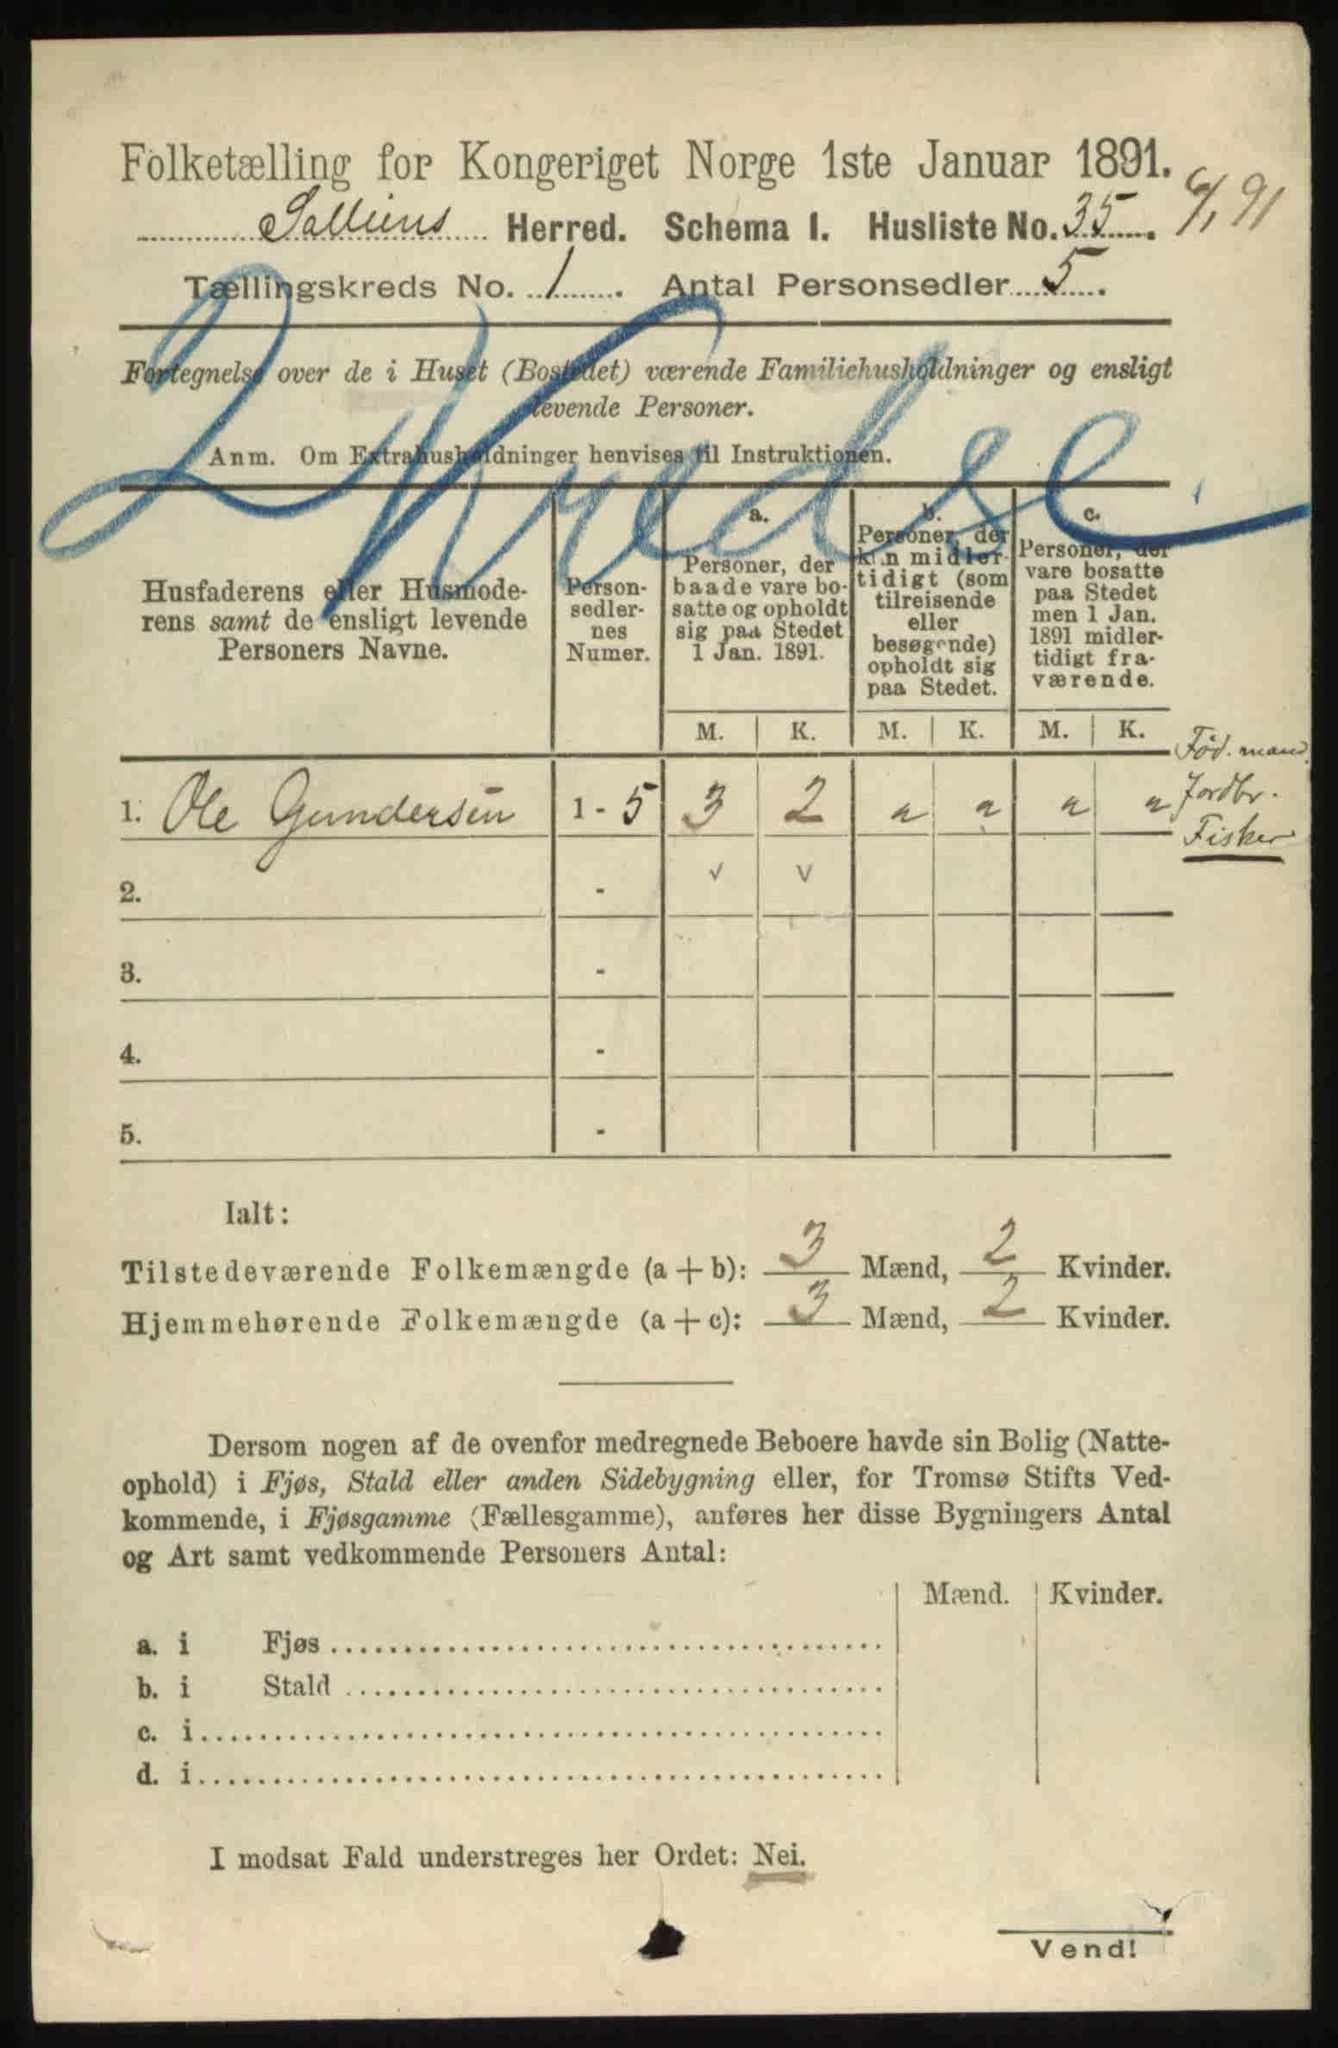 Folketælling for Kongeriget Norge 1ste Januar 1891.
Herred. Schema I. Husliste No. 35.
Tællingskreds No. 1. Antal Personsedler 5.
Fortegnelse over de i Huset (Bostedet) værende Familiehusholdninger og ensligt
levende Personer.
Anm. Om Extrahusholdninger henvises til Instruktionen.
2 Kredse
Husfaderens eller Husmode-
rens samt de ensligt levende
Personers Navne.
Person-
sedler-
nes
Numer.
a.
Personer, der
baade vare bo-
satte og opholdt
sig paa Stedet
1 Jan. 1891.
b.
Personer, der
kun midler-
tidigt (som
tilreisende
eller
besøgende)
opholdt sig
paa Stedet.
c.
Personer, der
vare bosatte
paa Stedet
men 1 Jan.
1891 midler-
tidigt fra-
værende.
M. K. M. K. M. K.
1. Ole Gundersen 1 - 5 3 2 " " " "
Jordbr.
Fisker
2. - v v
3. -
4. -
5. -
Ialt:
Tilstedeværende Folkemængde (a + b): 3 Mænd, 2 Kvinder.
Hjemmehørende Folkemængde (a + c): 3 Mænd, 2 Kvinder.
Dersom nogen af de ovenfor medregnede Beboere havde sin Bolig (Natte-
ophold) i Fjøs, Stald eller anden Sidebygning eller, for Tromsø Stifts Ved-
kommende, i Fjøsgamme (Fællesgamme), anføres her disse Bygningers Antal
og Art samt vedkommende Personers Antal:
Mænd. Kvinder.
a. i Fjøs
b. i Stald
c. i
d. i
I modsat Fald understreges her Ordet: Nei.
Vend!